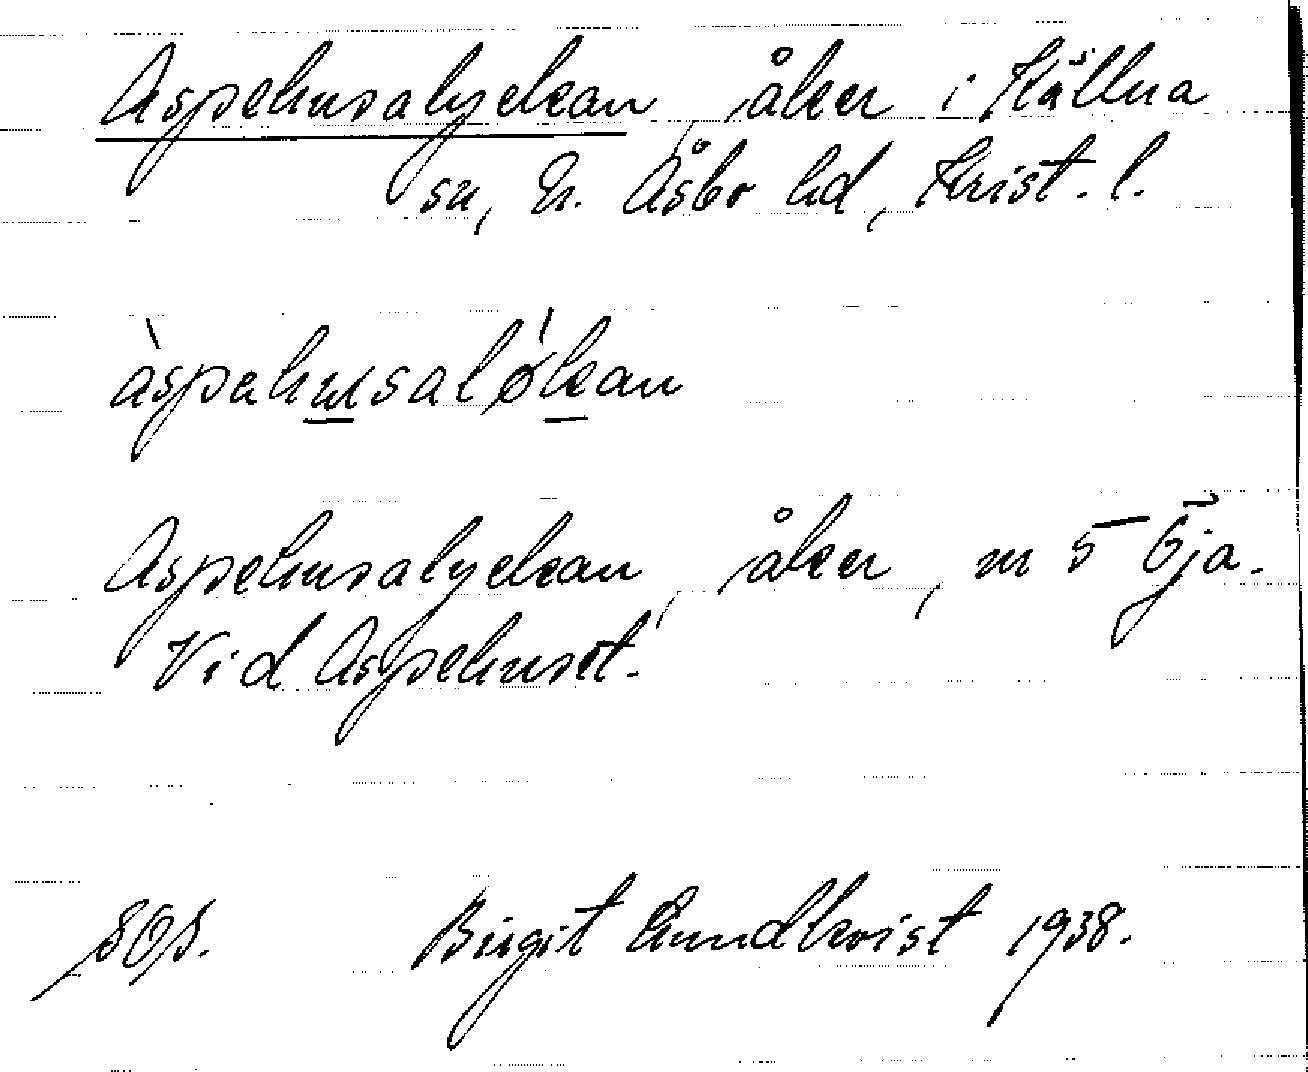 Aspehusalyckan, åker i Källna
sn, N. Åsbo hd, Krist. l.
àspahusaløkan
Aspehusalyckan, åker, nr 5 Gja.
Vid Aspehuset.
SOS. Birgit Lundkvist 1938.